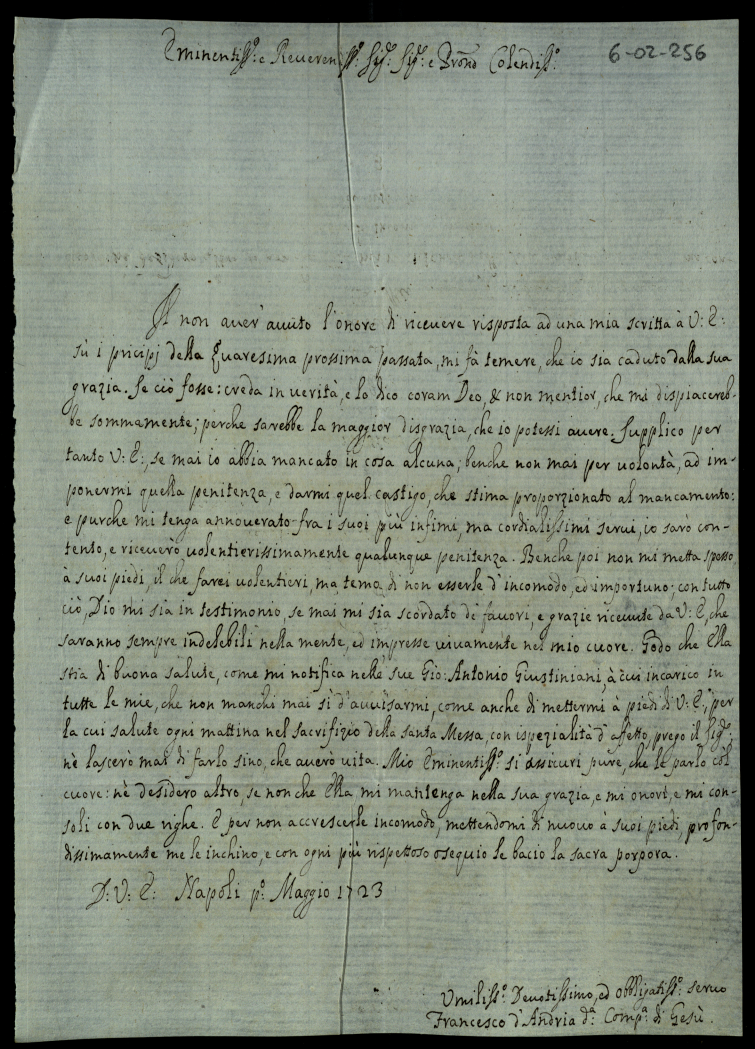 Eminentiss:º e Reverendiss:º Sig:r Sig:r e Pron̄e Colendiss:º
6-02-256
Il non aver' avuto l'onore di ricevere risposta ad una mia scritta à V: E:
sù i pricipj della Quaresima prossima passata, mi fà temere, che io sia caduto dalla sua
grazia. Se ciò fosse: creda in verità, e lo dico coram Deo, & non mentior, che mi dispiacereb-
be sommamente; perche sarebbe la maggior disgrazia, che io potessi avere. Supplico per
tanto V: E:, se mai io abbia mancato in cosa alcuna, benche non mai per volontà, ad im-
ponermi quella penitenza, e darmi quel castigo, che stima proporzionato al mancamento:
e purche mi tenga annoverato fra i suoi più infimi, ma cordialissimi servi, io sarò con-
tento, e riceverò volentierissimamente qualunque penitenza. Benche poi non mi metta spesso
à suoi piedi, il che farei volentieri, ma temo di non esserle d'incomodo, ed importuno; con tutto
ciò, Dio mi sia in testimonio, se mai mi sia scordato de' favori, e grazie ricevute da V: E, che
saranno sempre indelebili nella mente, ed impresse vivamente nel mio cuore. Godo che Ella
stia di buona salute, come mi notifica nelle sue Gio: Antonio Giustiniani, à cui incarico in
tutte le mie, che non manchi mai sì d'avvisarmi, come anche di mettermi à piedi di V: E:, per
la cui salute ogni mattina nel sacrifizio della santa Messa, con ispezialità d'affetto, prego il Sig:re
nè lascerò mai di farlo sino, che averò vita. Mio Eminentiss:º si assicuri pure, che le parlo col
cuore: nè desidero altro, se non che Ella mi mantenga nella sua grazia, e mi onori, e mi con-
soli con due righe. E per non accrescerle incomodo, mettendomi di nuovo à suoi piedi, profon-
dissimamente me le inchino, e con ogni più rispettoso ossequio le bacio la sacra porpora.
D: V: E: Napoli pº Maggio 1723
Umiliss:º Devotissimo, ed obbligatiss:º servo
Francesco d'Andria d:ª Comp:ª di Gesù.